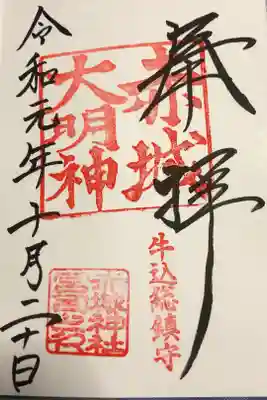 奉拝
牛込総鎮守
赤城
大明神
赤城神社
令和元年十月二十日